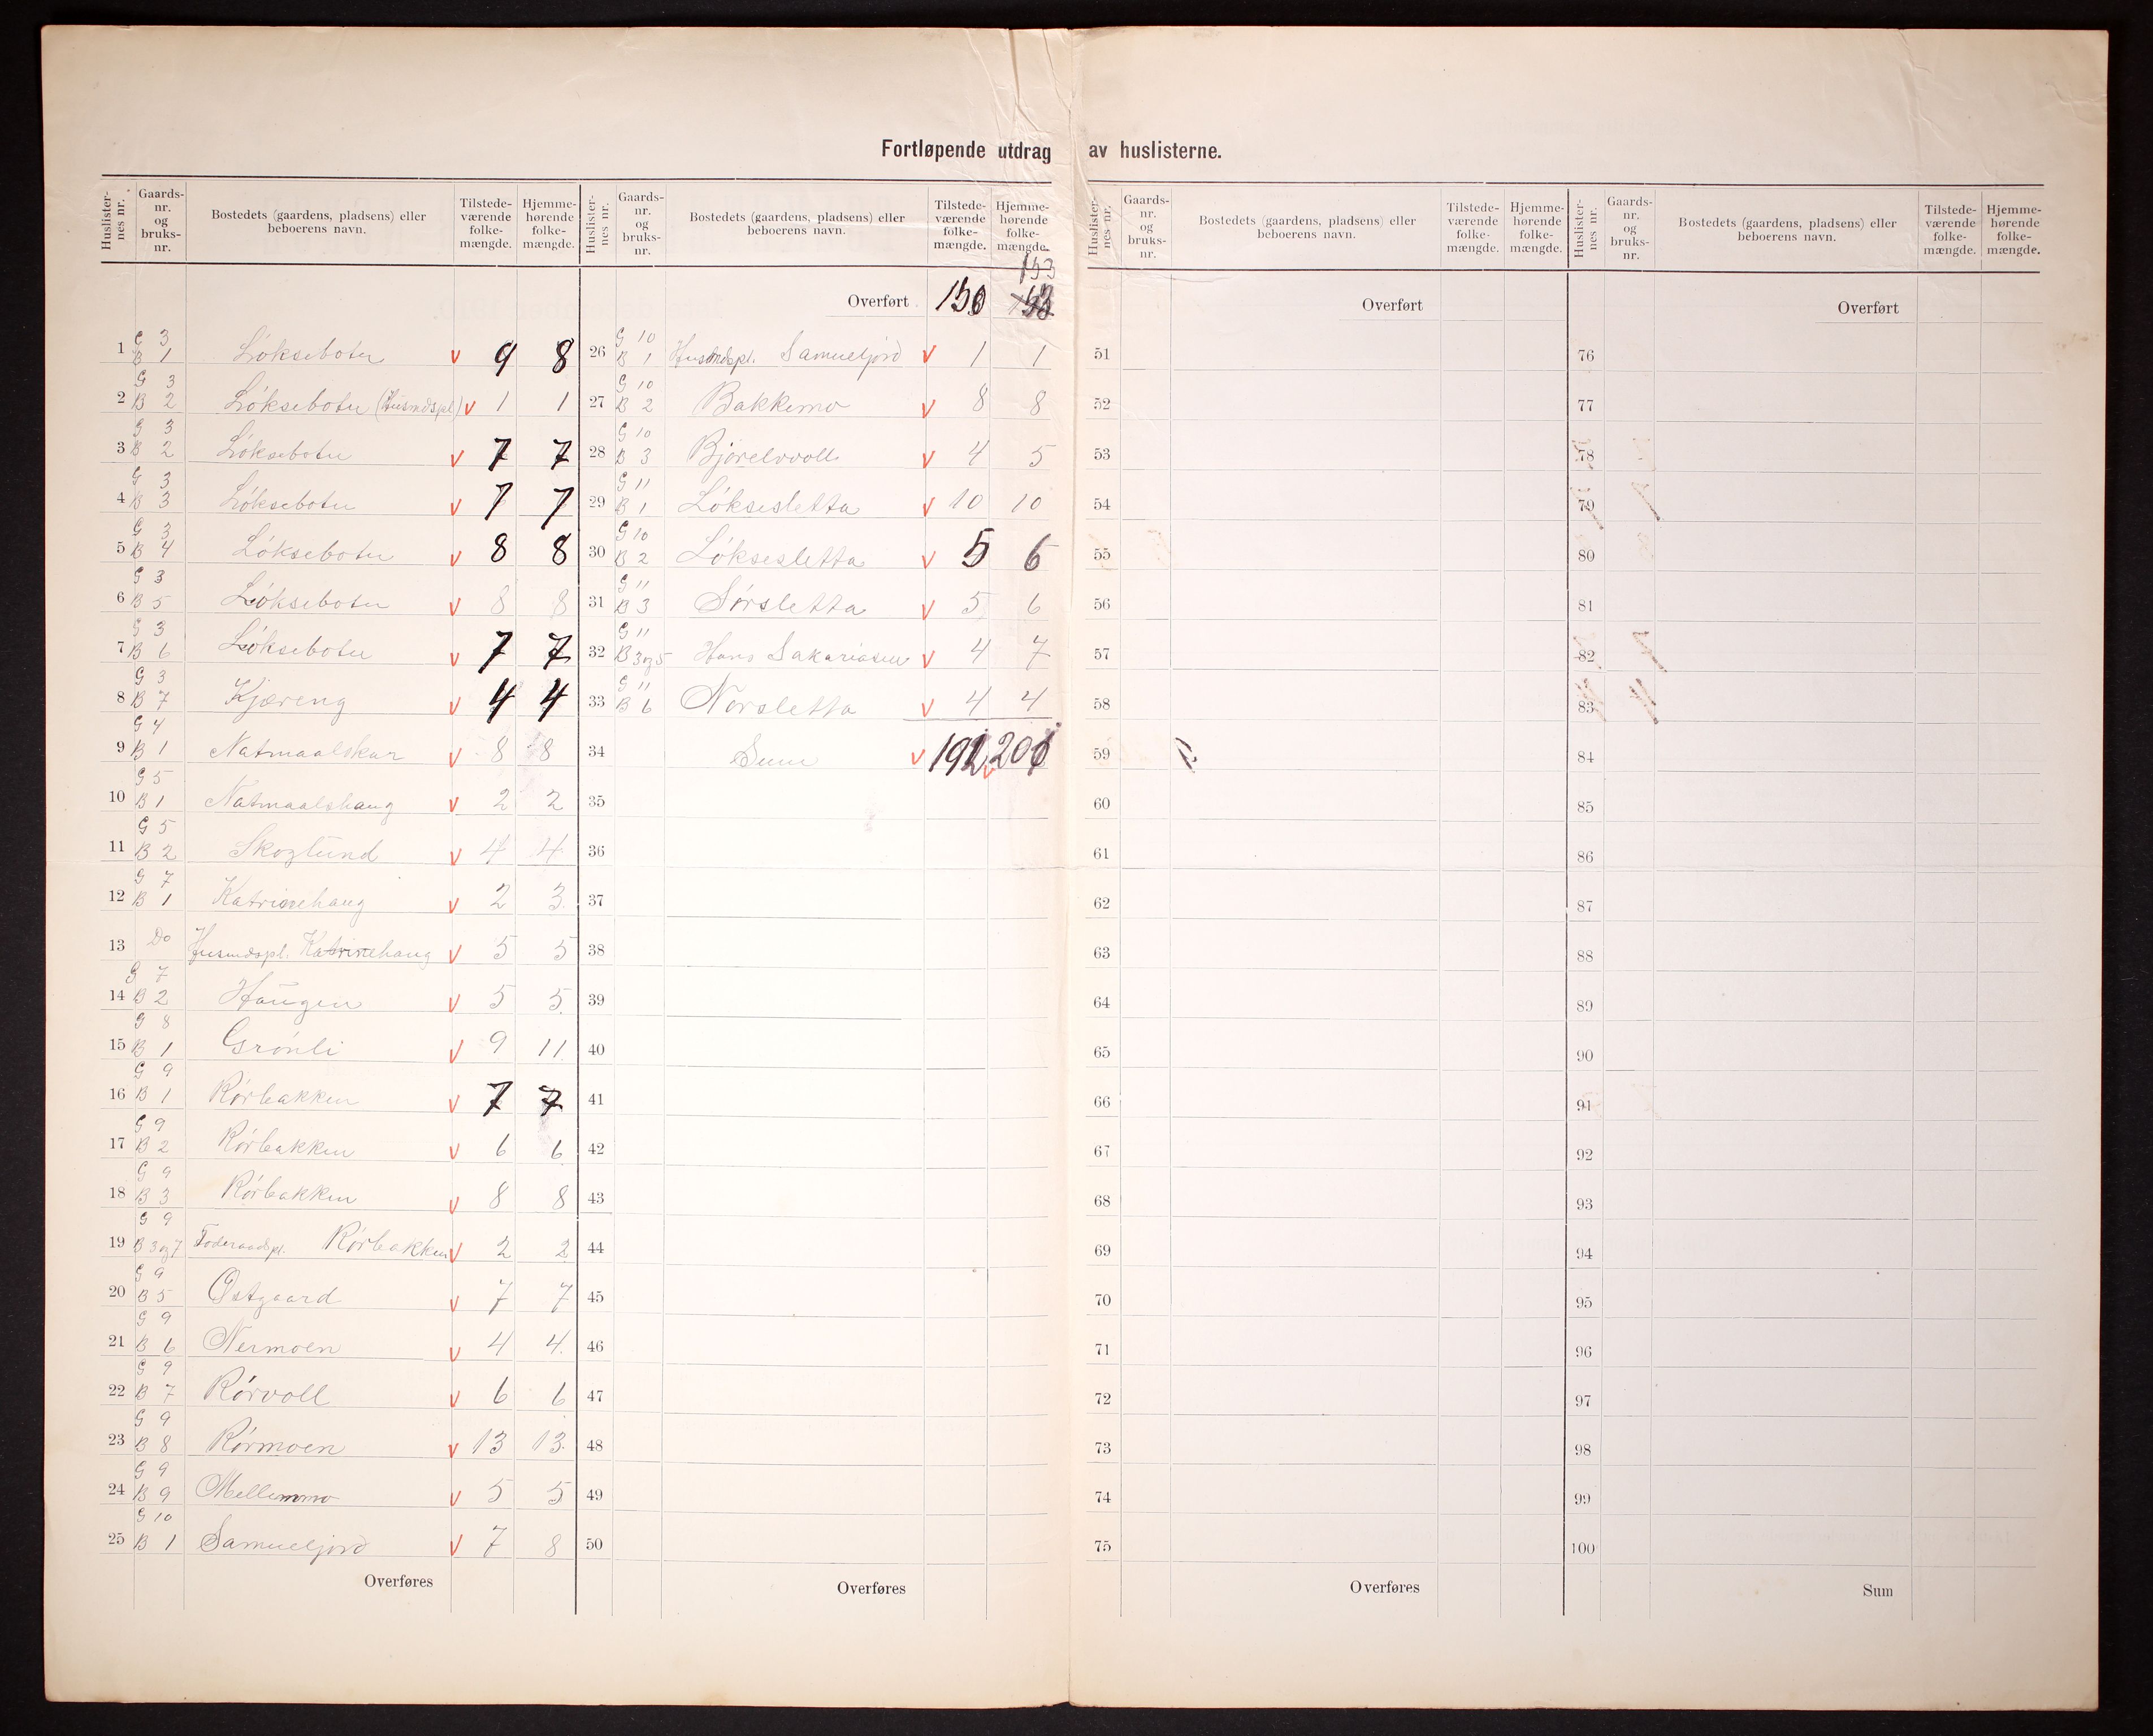 Fortløpende utdrag av huslisterne.
Huslister-nes nr. Gaards-nr. og bruks-nr. Bostedets (gaardens, pladsens) eller beboerens navn. Tilstede-værende folke-mængde. Hjemme-hørende folke-mængde.
1 G 3 B 1 Løksebotn v 9 8
2 G 3 B 2 Løksebotn (Husmdspl) v 1 1
3 G 3 B 2 Løksebotn v 7 7
4 G 3 B 3 Løksebotn v 7 7
5 G 3 B 4 Løksebotn v 8 8
6 G 3 B 5 Løksebotn v 8 8
7 G 3 B 6 Løksebotn v 7 7
8 G 3 B 7 Kjæreng v 4 4
9 G 4 B 1 Natmaalskar v 8 8
10 G 5 B 1 Natmaalshaug v 2 2
11 G 5 B 2 Skoglund v 4 4
12 G 7 B 1 Katrinehaug v 2 3
13 Do Husmdspl. Katrinehaug v 5 5
14 G 7 B 2 Haugen v 5 5
15 G 8 B 1 Grønli v 9 11
16 G 9 B 1 Rørbakken v 7 7
17 G 9 B 2 Rørbakken v 6 6
18 G 9 B 3 Rørbakken v 8 8
19 G 9 B 3 og 7 Foderaadspl. Rørbakken v 2 2
20 G 9 B 5 Østgaard v 7 7
21 G 9 B 6 Nermoen v 4 4
22 G 9 B 7 Rørvoll v 6 6
23 G 9 B 8 Rørmoen v 13 13
24 G 9 B 9 Mellemmo v 5 5
25 G 10 B 1 Samueljord v 7 8
Overføres
Huslister-nes nr. Gaards-nr. og bruks-nr. Bostedets (gaardens, pladsens) eller beboerens navn. Tilstede-værende folke-mængde. Hjemme-hørende folke-mængde.
153
Overført 150
26 G 10 B 1 Husmdspl. Samueljord v 1 1
27 G 10 B 2 Bakkemo v 8 8
28 G 10 B 3 Bjørelvvoll v 4 5
29 G 11 B 1 Løksesletta v 10 10
30 G 10 B 2 Løksesletta v 5 6
31 G 11 B 3 Sørsletta v 5 6
32 G 11 B 3 og 5 Hans Sakariasen v 4 7
33 G 11 B 6 Norsletta v 4 4
34 Sum v 192 v 20
35
36
37
38
39
40
41
42
43
44
45
46
47
48
49
50
Overføres
Huslister-nes nr. Gaards-nr. og bruks-nr. Bostedets (gaardens, pladsens) eller beboerens navn. Tilstede-værende folke-mængde. Hjemme-hørende folke-mængde.
Overført
51
52
53
54
55
56
57
58
59
60
61
62
63
64
65
66
67
68
69
70
71
72
73
74
75
Overføres
Huslister-nes nr. Gaards-nr. og bruks-nr. Bostedets (gaardens, pladsens) eller beboerens navn. Tilstede-værende folke-mængde. Hjemme-hørende folke-mængde.
Overført
76
77
78
79
80
81
82
83
84
85
86
87
88
89
90
91
92
93
94
95
96
97
98
99
100
Sum